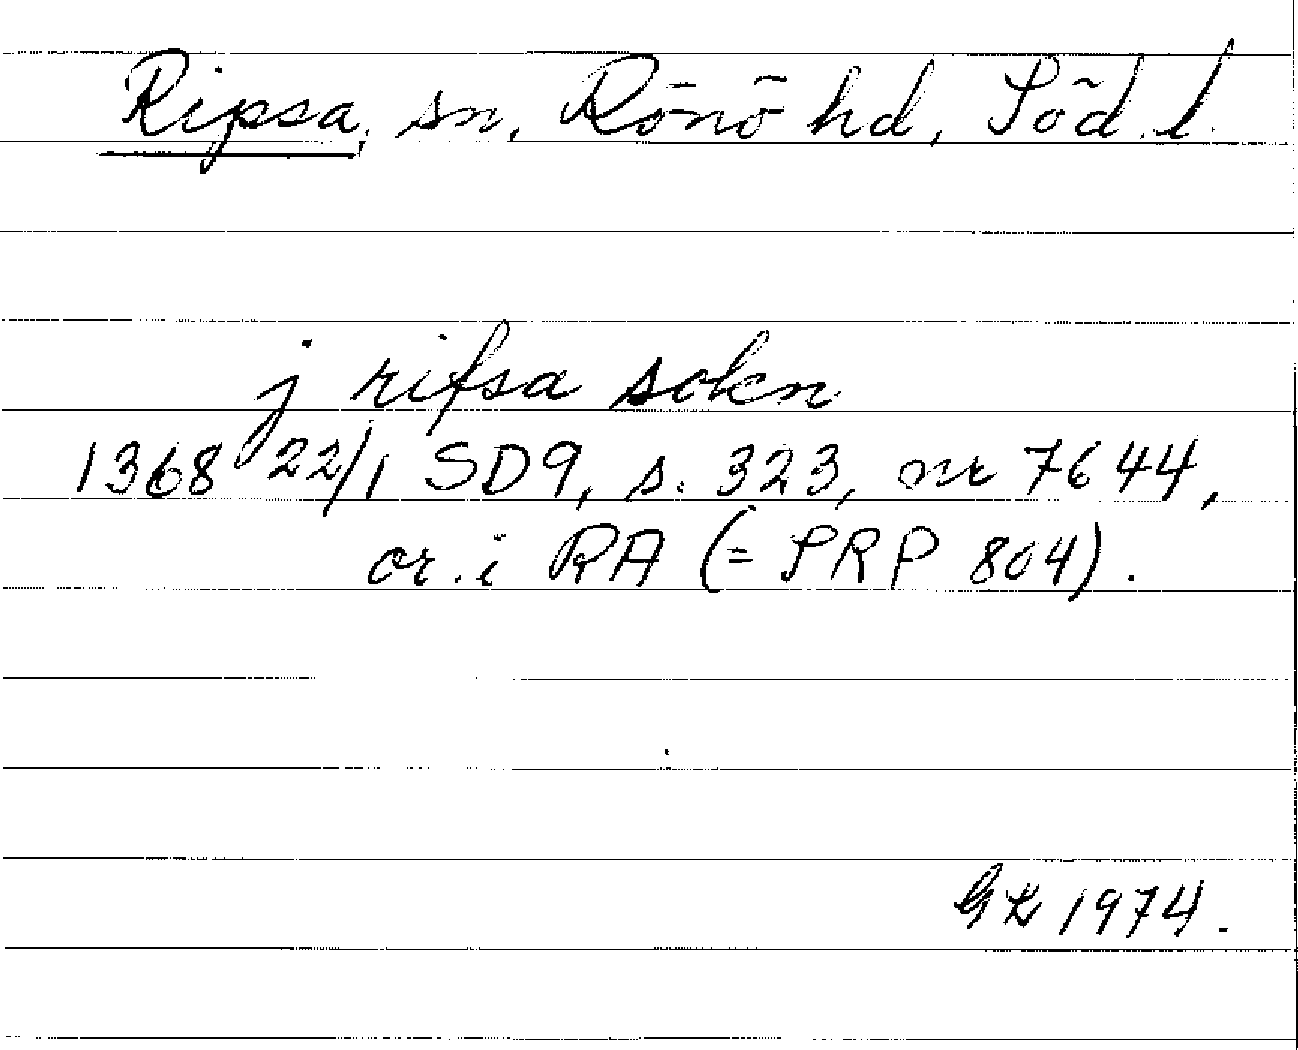 Ripsa, sn, Rönö hd, Söd. l.
j rifsa sokn
1368 22/1 SD9, s. 323, nr 7644,
or. i RA (= SRP 804).
GK 1974.